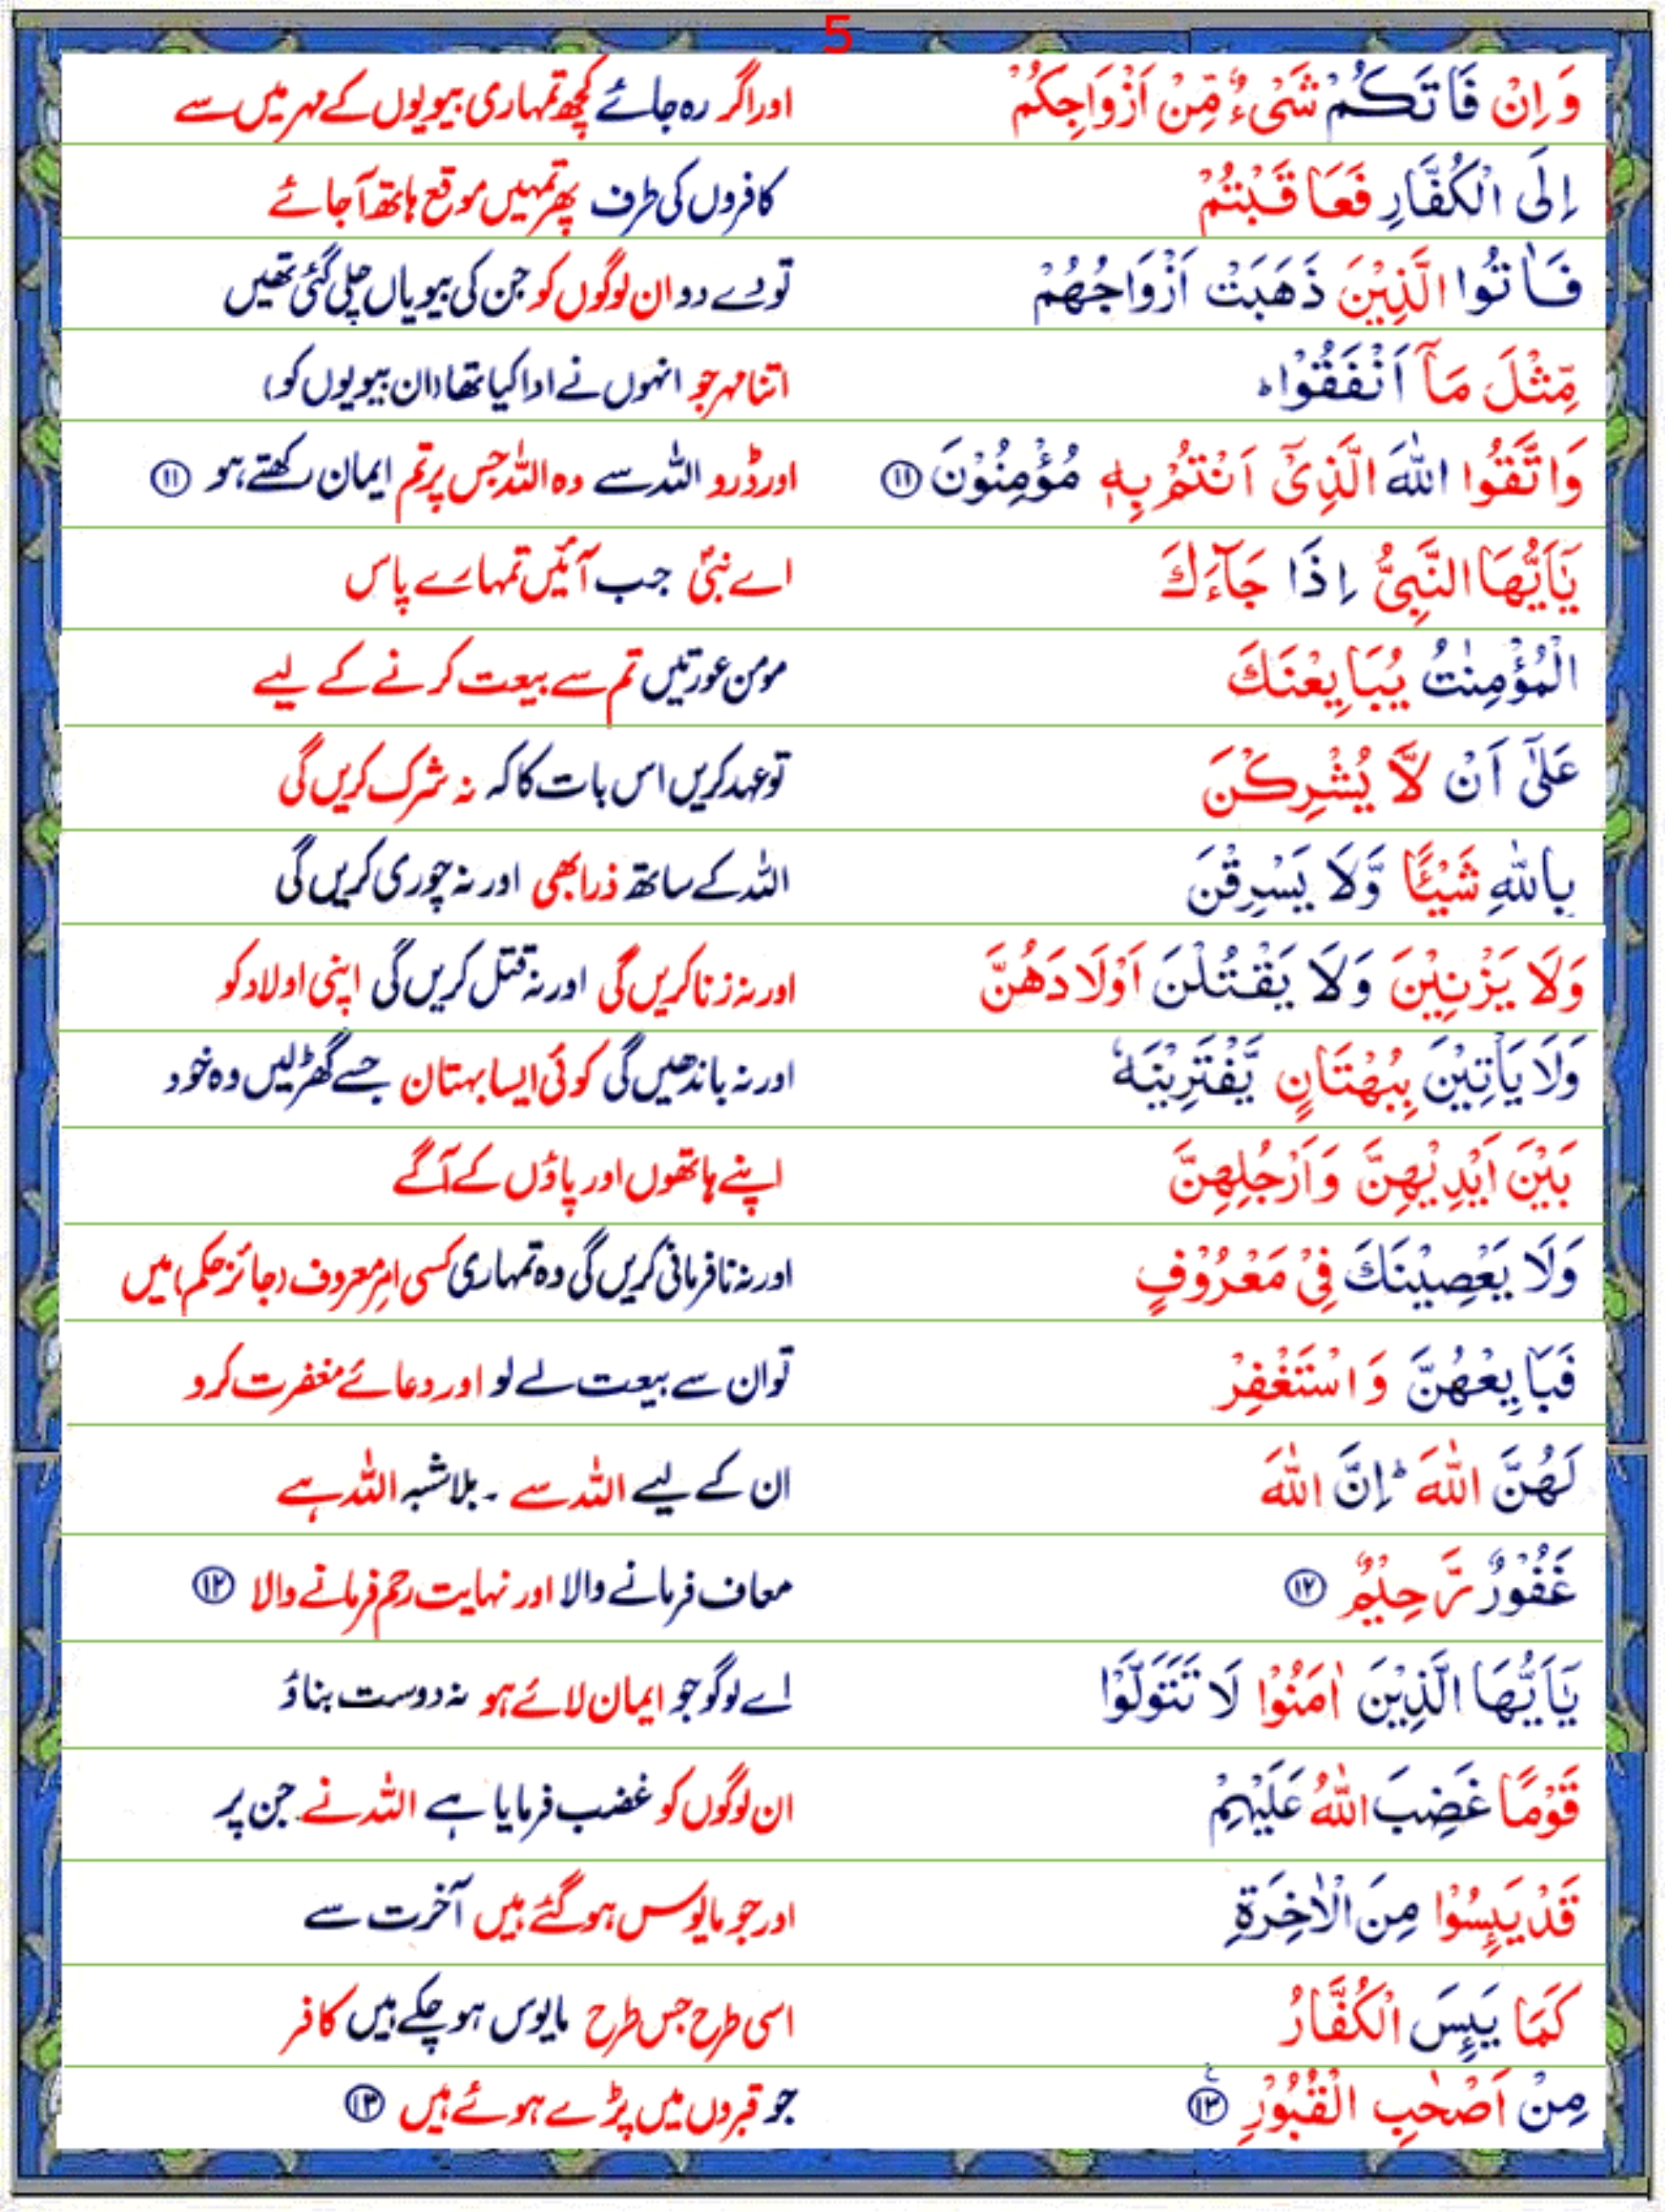 5
وَاِنْ فَاتَكُمْ شَیْءٌ مِّنْ اَزْوَاجِكُمْ اور اگر رہ جائے کچھ تمہاری بیویوں کے مہر میں سے
اِلَى الْكُفَّارِ فَعَاقَبْتُمْ کافروں کی طرف پھر تمہیں موقع ہاتھ آجائے
فَاٰتُوا الَّذِیْنَ ذَهَبَتْ اَزْوَاجُهُمْ تو دے دو ان لوگوں کو جن کی بیویاں چلی گئی تھیں
مِّثْلَ مَاۤ اَنْفَقُوْا ؕ اتنا مہر جو انہوں نے ادا کیا تھا (ان بیویوں کو)
وَاتَّقُوا اللّٰهَ الَّذِیْۤ اَنْتُمْ بِهٖ مُؤْمِنُوْنَ ۝۱۱ اور ڈرو اللہ سے وہ اللہ جس پر تم ایمان رکھتے ہو ۝۱۱
یٰۤاَیُّهَا النَّبِیُّ اِذَا جَآءَكَ اے نبیؐ جب آئیں تمہارے پاس
الْمُؤْمِنٰتُ یُبَایِعْنَكَ مومن عورتیں تم سے بیعت کرنے کے لیے
عَلٰۤى اَنْ لَّا یُشْرِكْنَ تو عہد کریں اس بات کا کہ نہ شرک کریں گی
بِاللّٰهِ شَیْـًٔا وَّلَا یَسْرِقْنَ اللہ کے ساتھ ذرا بھی اور نہ چوری کریں گی
وَلَا یَزْنِیْنَ وَلَا یَقْتُلْنَ اَوْلَادَهُنَّ اور نہ زنا کریں گی اور نہ قتل کریں گی اپنی اولاد کو
وَلَا یَاْتِیْنَ بِبُهْتَانٍ یَّفْتَرِیْنَهٗ اور نہ باندھیں گی کوئی ایسا بہتان جسے گھڑ لیں وہ خود
بَیْنَ اَیْدِیْهِنَّ وَاَرْجُلِهِنَّ اپنے ہاتھوں اور پاؤں کے آگے
وَلَا یَعْصِیْنَكَ فِیْ مَعْرُوْفٍ اور نہ نافرمانی کریں گی وہ تمہاری کسی امرِ معروف (جائز حکم) میں
فَبَایِعْهُنَّ وَاسْتَغْفِرْ تو ان سے بیعت لے لو اور دعائے مغفرت کرو
لَهُنَّ اللّٰهَ ؕ اِنَّ اللّٰهَ ان کے لیے اللہ سے ۔ بلاشبہ اللہ ہے
غَفُوْرٌ رَّحِیْمٌ ۝۱۲ معاف فرمانے والا اور نہایت رحم فرمانے والا ۝۱۲
یٰۤاَیُّهَا الَّذِیْنَ اٰمَنُوْا لَا تَتَوَلَّوْا اے لوگو جو ایمان لائے ہو نہ دوست بناؤ
قَوْمًا غَضِبَ اللّٰهُ عَلَیْهِمْ ان لوگوں کو غضب فرمایا ہے اللہ نے جن پر
قَدْ یَىِٕسُوْا مِنَ الْاٰخِرَةِ اور جو مایوس ہوگئے ہیں آخرت سے
كَمَا یَىِٕسَ الْكُفَّارُ اسی طرح جس طرح مایوس ہوچکے ہیں کافر
مِنْ اَصْحٰبِ الْقُبُوْرِ ۝۱۳ ع جو قبروں میں پڑے ہوئے ہیں ۝۱۳